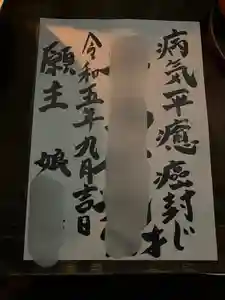 病気平癒癌封じ
才
令和五年九月吉日
願主 娘